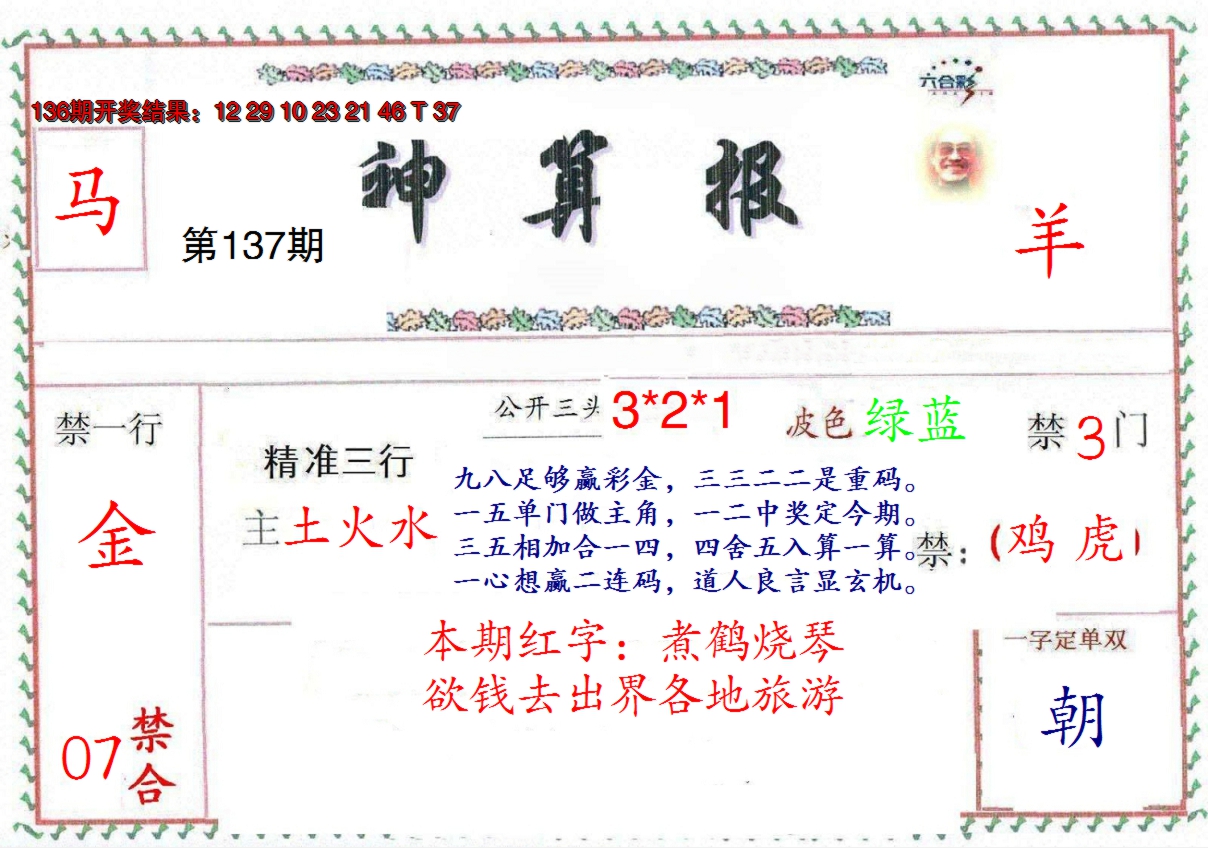 六合彩
136期开奖结果：12 29 10 23 21 46 T 37
神算报
马
第137期
羊
禁一行
金
07
禁合
精准三行
主土火水
公开三头 3*2*1
波色 绿蓝
禁3门
九八足够赢彩金，三三二二是重码。
一五单门做主角，一二中奖定今期。
三五相加合一四，四舍五入算一算。
一心想赢二连码，道人良言显玄机。
禁：(鸡 虎)
本期红字：煮鹤烧琴
欲钱去出界各地旅游
一字定单双
朝